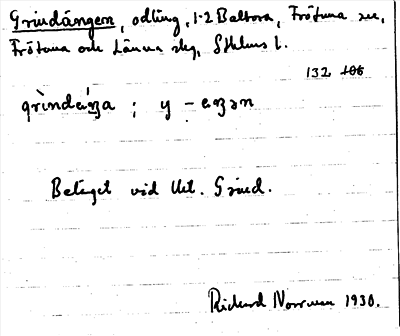 Grindängen, odling, 1-2 Baltora, Frötuna sn,
Frötuna och Länna skg, Sthlms l.
132 106
grìndeŋ́a ; y – eŋən
Beläget vid Ut. Grind.
Richard Norrman 1930.